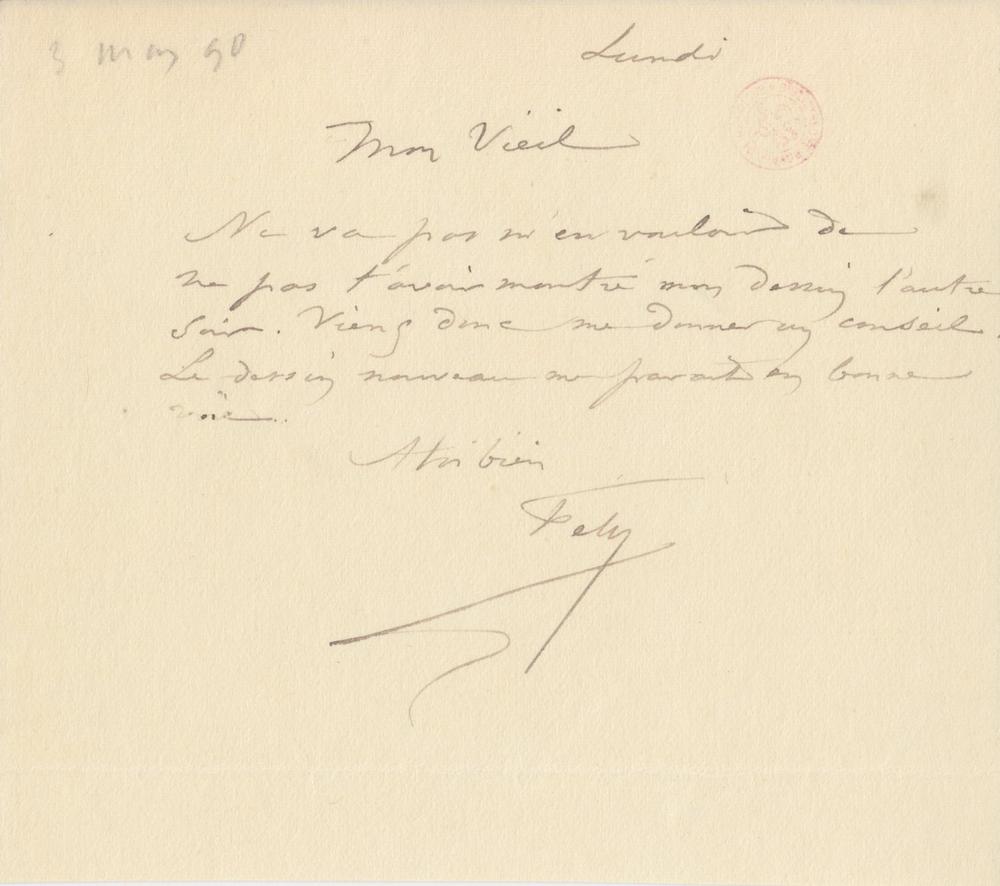 3 mars 90
Lundi
Mon Vieil
Ne va pas m'en vouloir de
ne pas t'avoir montré mon dessin l'autre
soir. Viens donc me donner un conseil.
Le dessin nouveau me parait en bonne
voie..
A toi bien
Fély